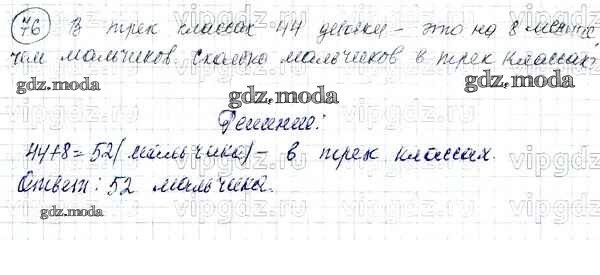 76 В трех классах 44 девочки - это на 8 меньше,
чем мальчиков. Сколько мальчиков в трех классах?
gdz.moda gdz.moda gdz.moda
Решение:
44+8=52(мальчика)- в трех классах.
Ответ: 52 мальчика.
gdz.moda gdz.moda